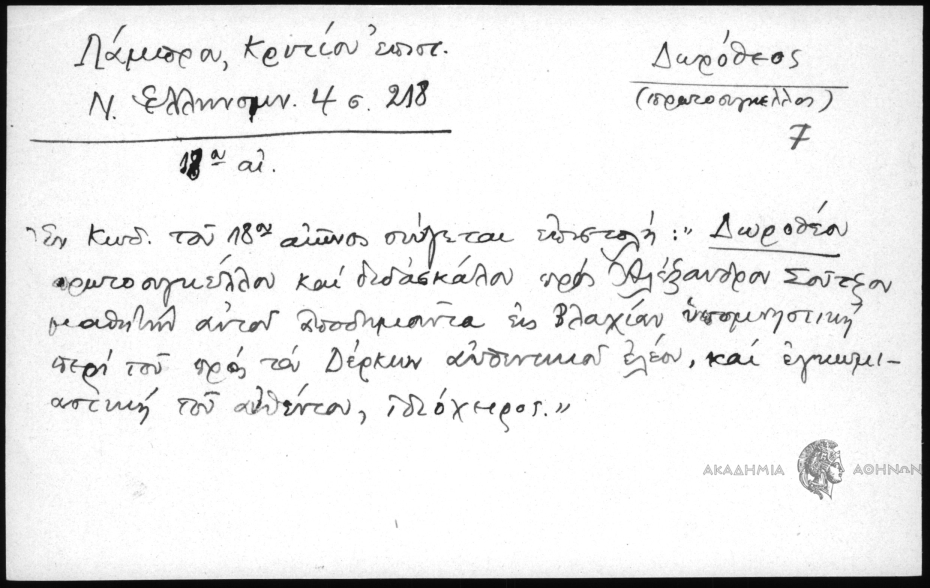 Λάμπρου, Κρητίου ἐπιστ.
Ν. Ελληνομν. 4 σ. 218
18ου αἰ.
Δωρόθεος
(πρωτοσύγκελλος)
7
Ἐν Κωδ. τοῦ 18ου αἰῶνος σώζεται ἐπιστολή: "Δωροθέου
πρωτοσυγκέλλου καί διδασκάλου πρός Ἀλέξανδρον Σοῦτζον
μαθητήν αὐτοῦ ἀποδημοῦντα εἰς Βλαχίαν ὑπομνηστική
περί τοῦ πρός τόν Δέρκων αὐθεντικοῦ ἐλέου, καί ἐγκωμι-
αστική τοῦ αὐθέντου, ἰδιόχειρος."
ΑΚΑΔΗΜΙΑ ΑΘΗΝΩΝ